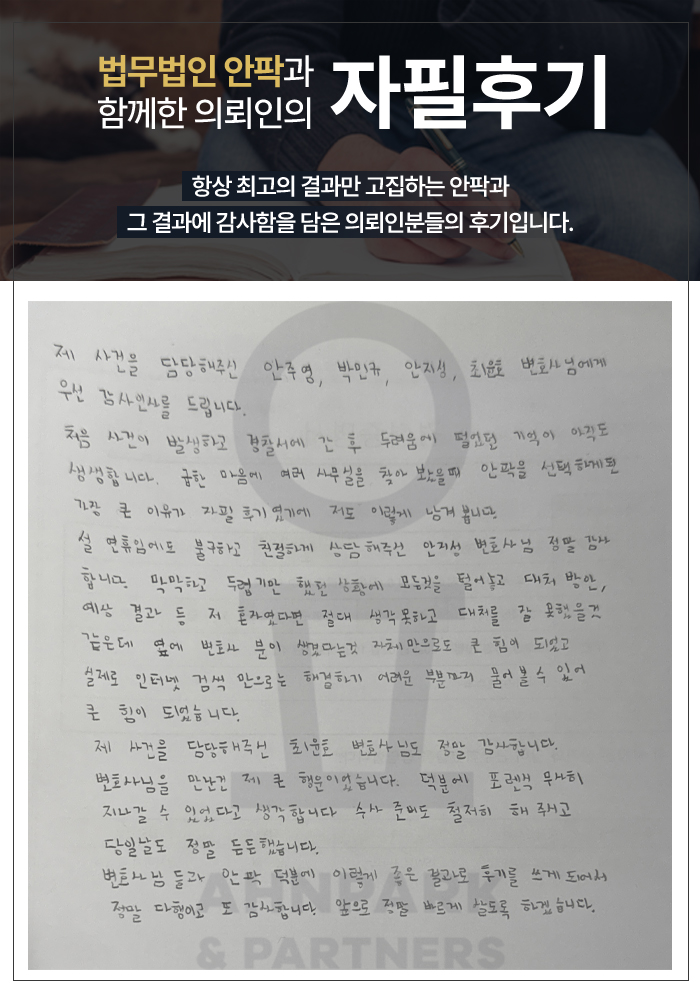 법무법인 안팍과
함께한 의뢰인의
자필후기
항상 최고의 결과만 고집하는 안팍과
그 결과에 감사함을 담은 의뢰인분들의 후기입니다.
제 사건을 담당해주신 안주영, 박민규, 안지성, 최윤호 변호사님에게
우선 감사인사를 드립니다.
처음 사건이 발생하고 경찰서에 간 후 두려움에 떨었던 기억이 아직도
생생합니다. 급한 마음에 여러 사무실을 찾아 보았을때 안팍을 선택하게된
가장 큰 이유가 자필 후기였기에 저도 이렇게 남겨 봅니다.
설 연휴임에도 불구하고 친절하게 상담해주신 안지성 변호사님 정말 감사
합니다. 막막하고 두렵기만 했던 상황에 모든것을 털어놓고 대처 방안,
예상 결과 등 저 혼자였다면 절대 생각못하고 대처를 잘 못했을것
같은데 옆에 변호사 분이 생겼다는것 자체만으로도 큰 힘이 되었고
실제로 인터넷 검색 만으로는 해결하기 어려운 부분까지 물어볼 수 있어
큰 힘이 되었습니다.
제 사건을 담당해주신 최윤호 변호사님도 정말 감사합니다.
변호사님을 만난건 제 큰 행운이었습니다. 덕분에 포렌식 무사히
지나갈 수 있었다고 생각합니다 수사 준비도 철저히 해 주시고
당일날도 정말 든든했습니다.
변호사님 들과 안팍 덕분에 이렇게 좋은 결과로 후기를 쓰게되어서
정말 다행이고 또 감사합니다. 앞으로 정말 바르게 살도록 하겠습니다.
AHNPARK
& PARTNERS